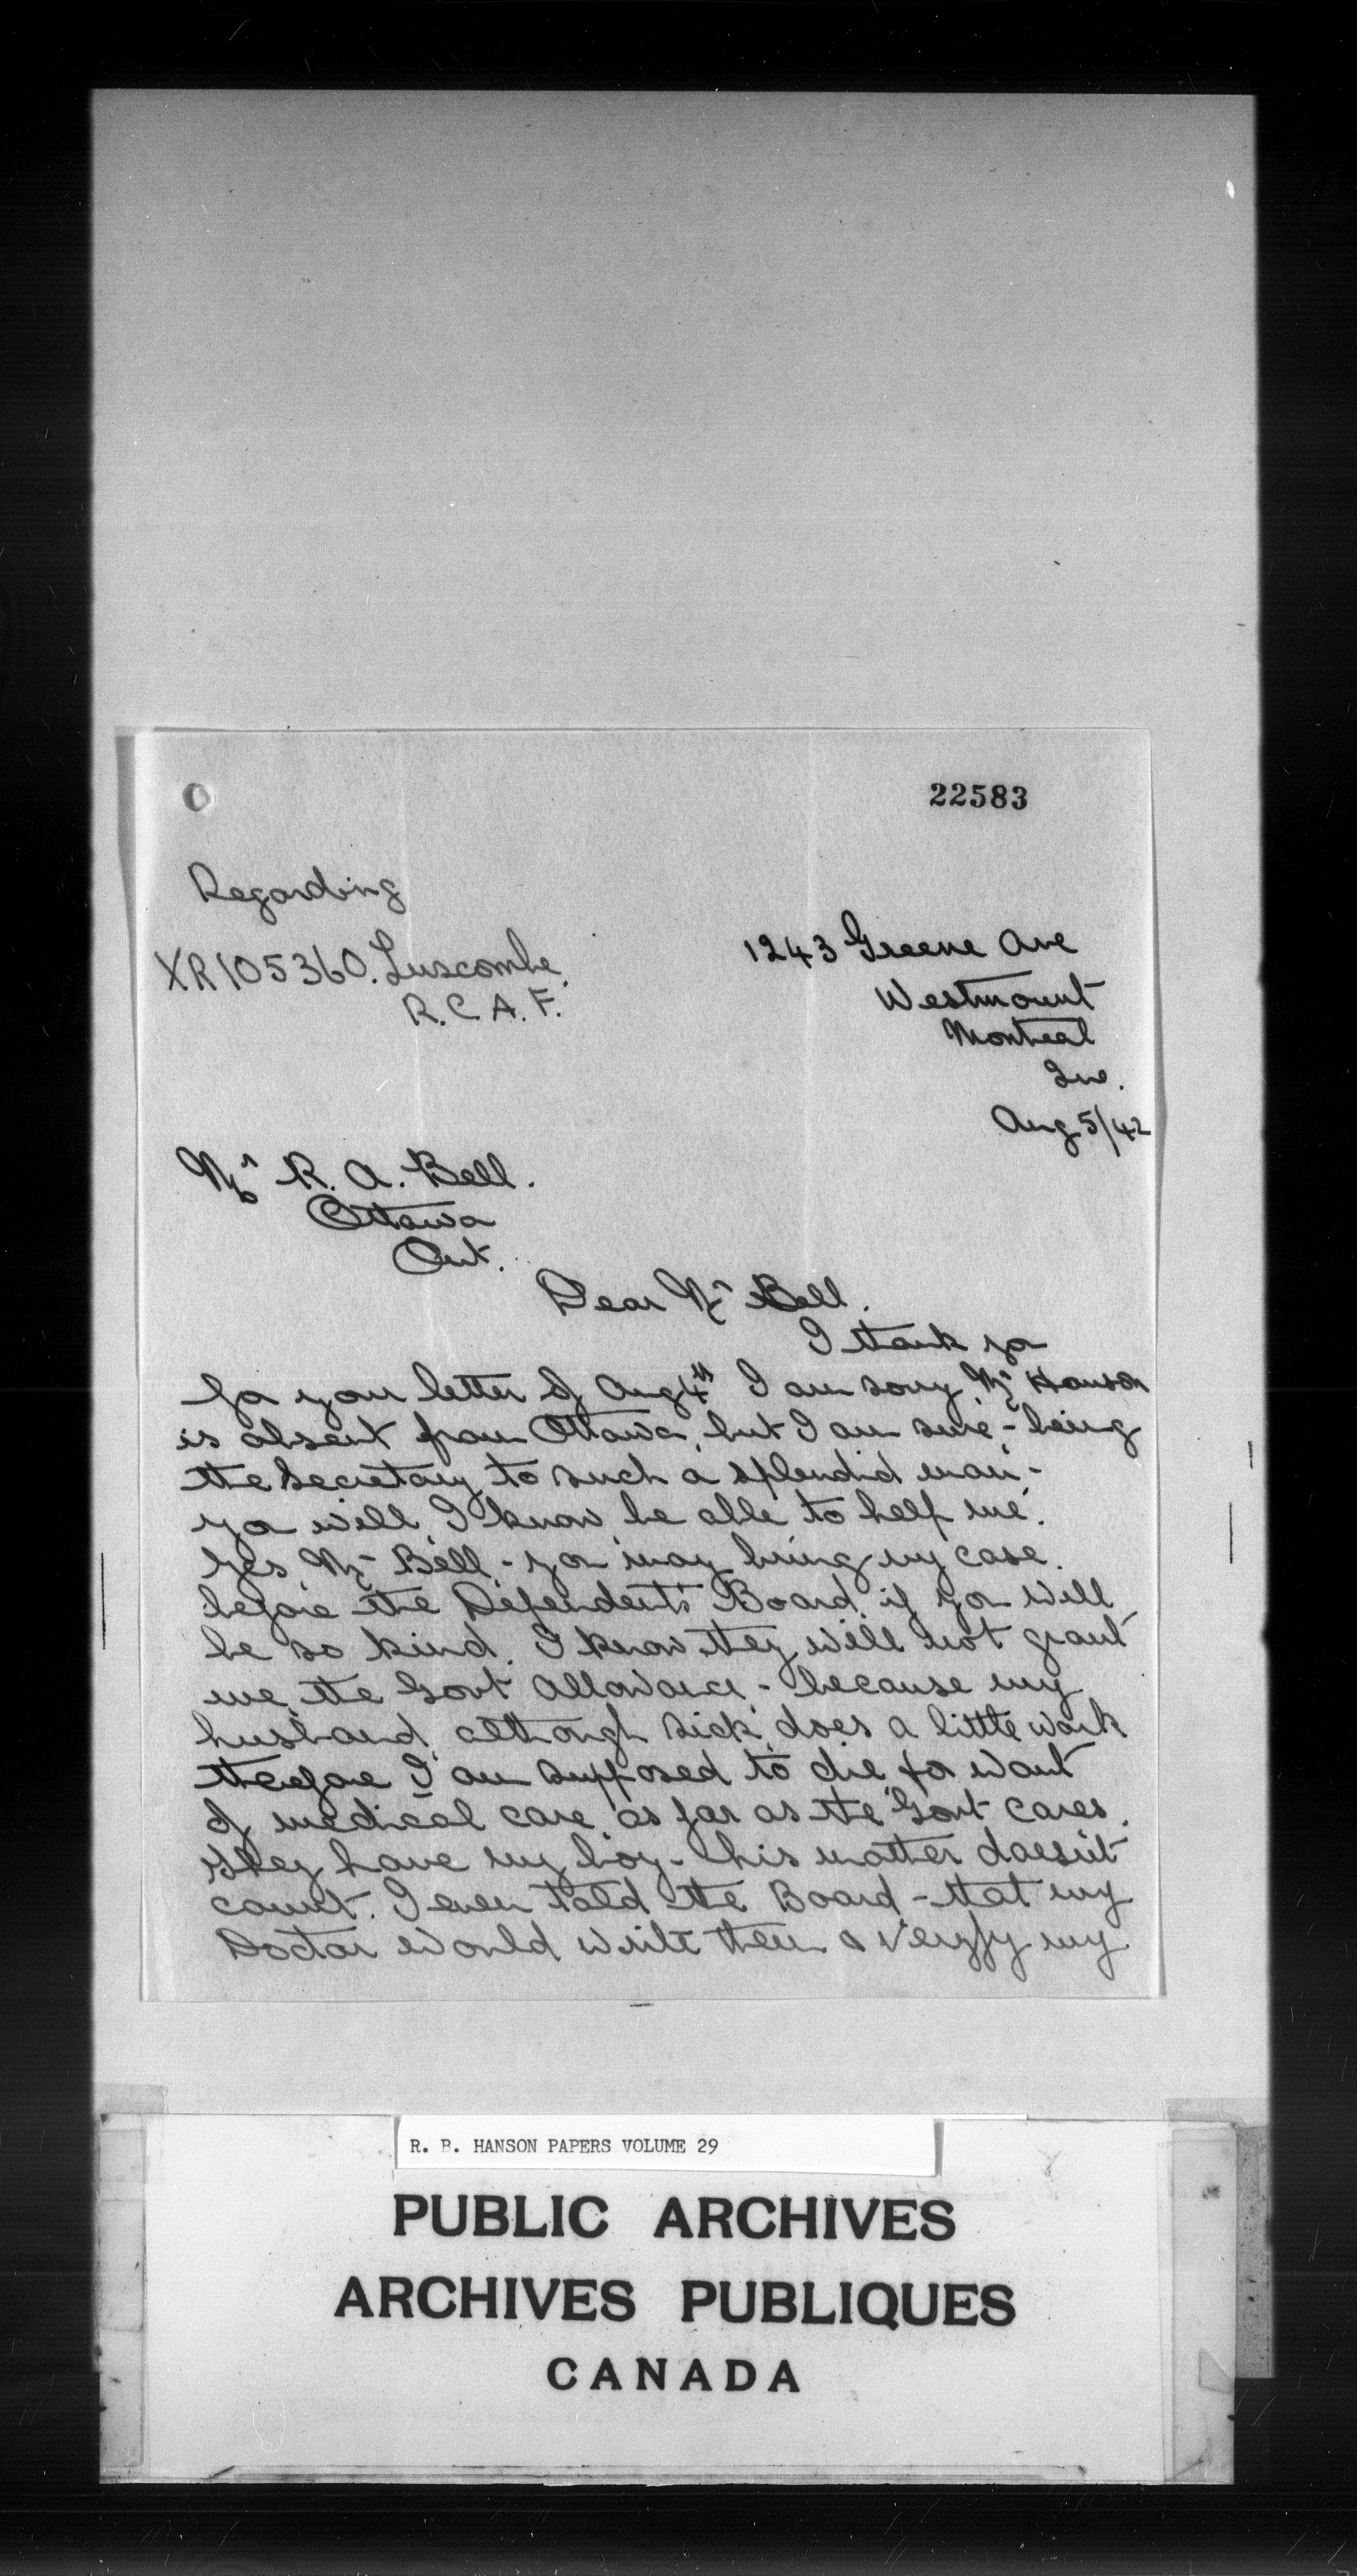 22583
Regarding
XR105360. Luscombe.
R.C.A.F.
1243 Greene Ave
Westmount
Montreal
Que.
Aug 5/42
Mr R. A. Bell.
Ottawa
Ont.
Dear Mr Bell.
I thank you
for your letter of Aug 4th I am sorry Mr Hanson
is absent from Ottawa, but I am sure - being
the Secretary to such a splendid man -
you will, I know, be able to help me.
Yes, Mr Bell - you may bring my case
before the Dependents Board, if you will
be so kind. I know they will not grant
me the Govt Allowance - because my
husband, although sick, does a little work
therefore I am supposed to die for want
of medical care, as far as the Govt cares.
They have my boy - his mother doesn't
count. I even told the Board - that my
Doctor would write them & verify my
R. B. HANSON PAPERS VOLUME 29
PUBLIC ARCHIVES
ARCHIVES PUBLIQUES
CANADA